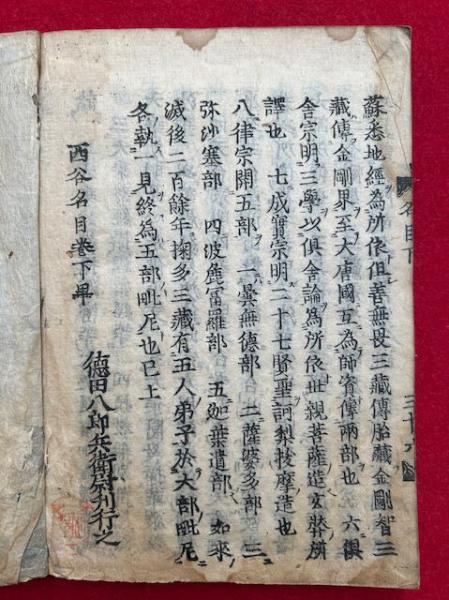 蘇悉地經為所依但善無畏三藏傳胎藏金剛智三
藏傳金剛界至大唐國互為師資傳兩部也　六俱
舍宗明三學以俱舍論為所依世親菩薩造玄奘所
譯也　七成實宗明二十七賢聖訶梨拔摩造也
八律宗開五部　一曇無德部　二薩婆多部　三
弥沙塞部　四波麁冨羅部　五迦葉遺部　如來
滅後二百餘年掬多三藏有五人弟子於大部毗尼
各執一見終為五部毗尼也已上
西谷名目卷下畢
德田八郎兵衛尉刊行之
名目下
三十六